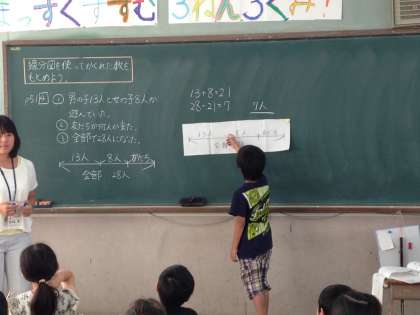 まっすぐすすむ 3ねん3くみ!
線分図を使ってかくれた数を
もとめよう。
p51 4 ① 男の子13人と女の子8人が
遊んでいた。
② 友だちが何人か来た。
③ 全部で28人になった。
13人 8人 友だち
全部 28人
13+8=21
28-21=7 7人
13人 8人 友だち
全部